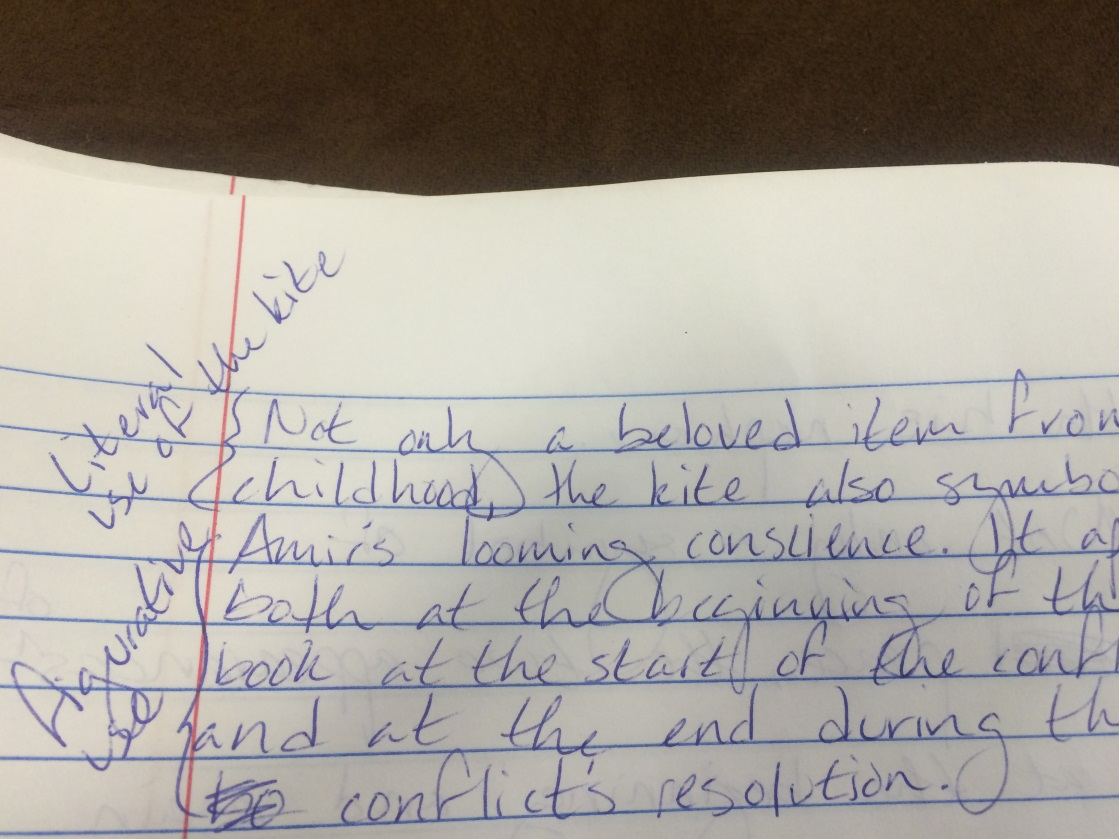 Literal
use of the kite
Figurative
use
Not only a beloved item from
childhood, the kite also symbo
Amir's looming conscience. It ap
both at the beginning of th
book at the start of the confl
and at the end during th
conflict's resolution.